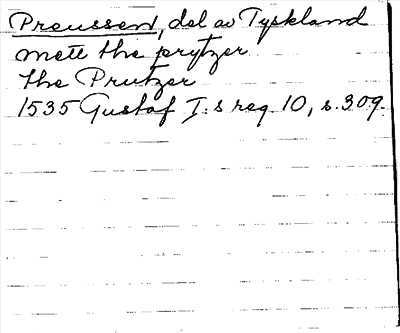 Preussen, del av Tyskland
mett the prytzer
the Prutzer
1535 Gustaf I:s reg. 10, s. 309.